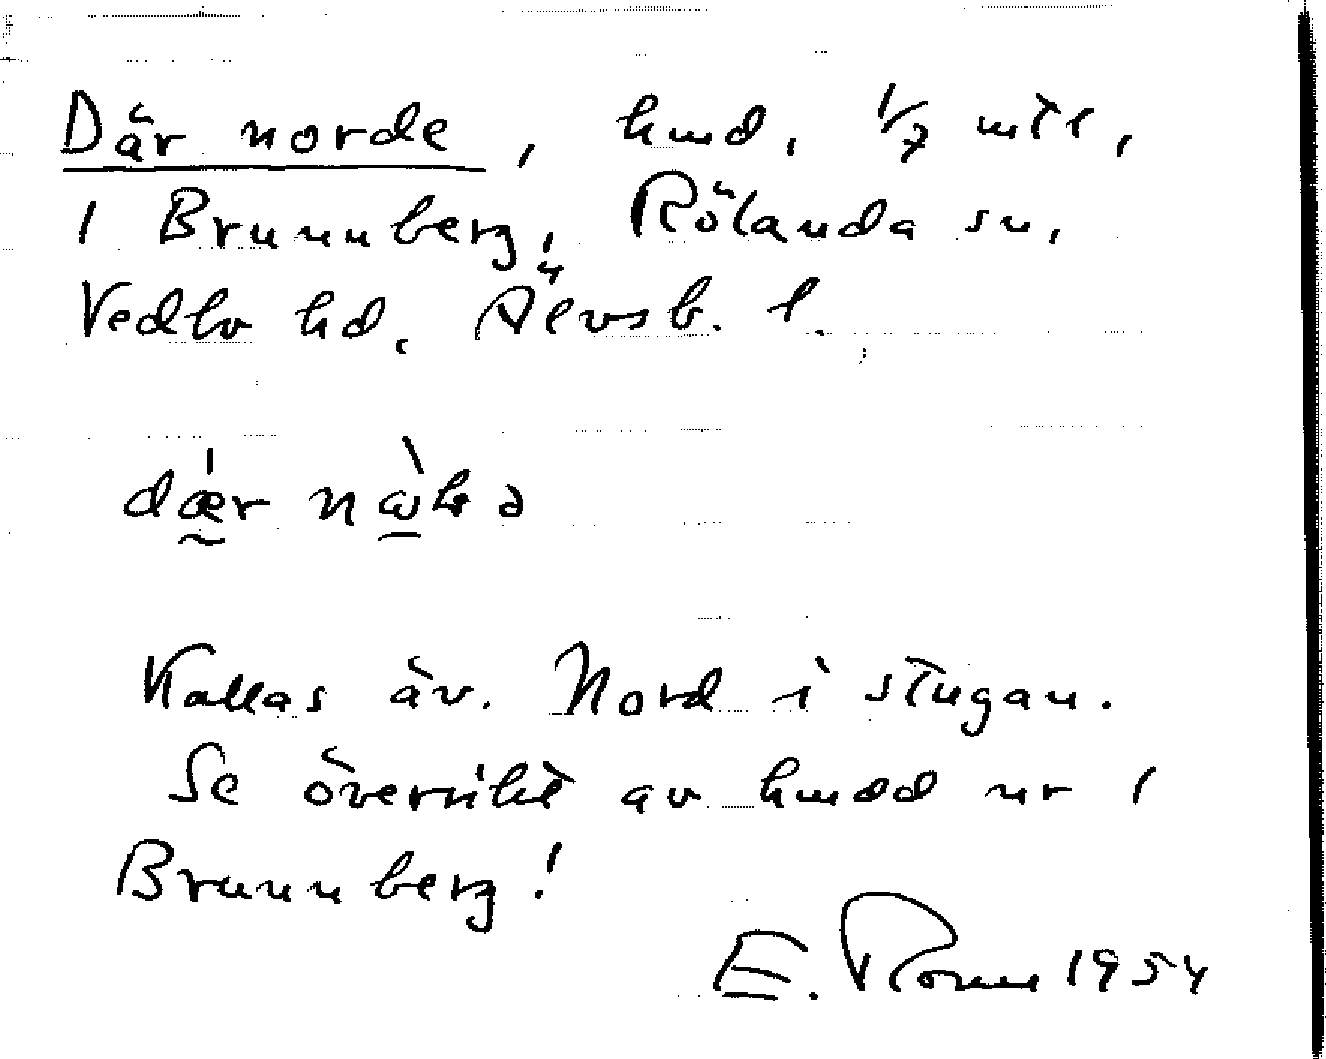 Där norde, hmd, 1/7 mtl,
i Brunnberg, Rölanda sn,
Vedbo hd. Älvsb. l.
dǽr
Kallas äv. Nord i stugan.
Se översikt av hmdd nr 1
Brunnberg!
E. 1954